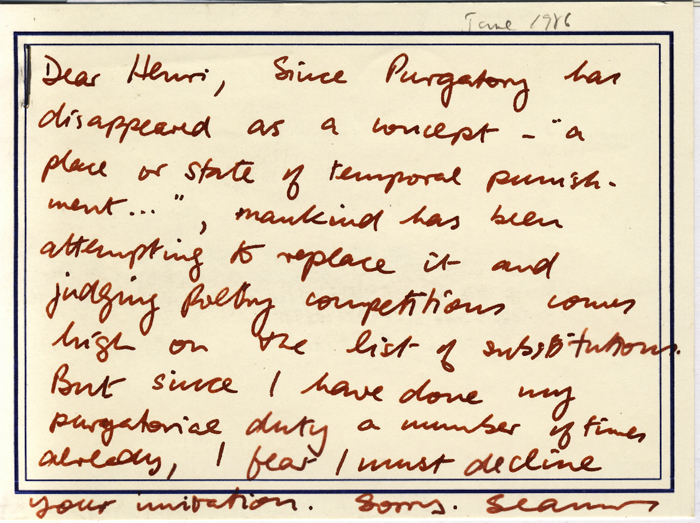 June 1986
Dear Henri, Since Purgatory has
disappeared as a concept - "a
place or state of temporal punish-
ment...", mankind has been
attempting to replace it and
judging poetry competitions comes
high on the list of substitutions.
But since I have done my
purgatorial duty a number of times
already, I fear I must decline
your invitation. Sorry. Seamus